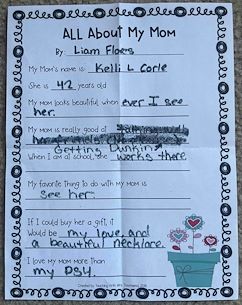 All About My Mom
By: Liam Floers
My Mom's name is: Kelli L Corle
She is 42 years old
My mom looks beautiful when ever I see
her.
My mom is really good at
Getting Dunkin
When I am at school, she works there
My favorite thing to do with my mom is
see her.
If I could buy her a gift, it
Would be my love and
a beautiful necklace.
I love my mom more than
my PS4.